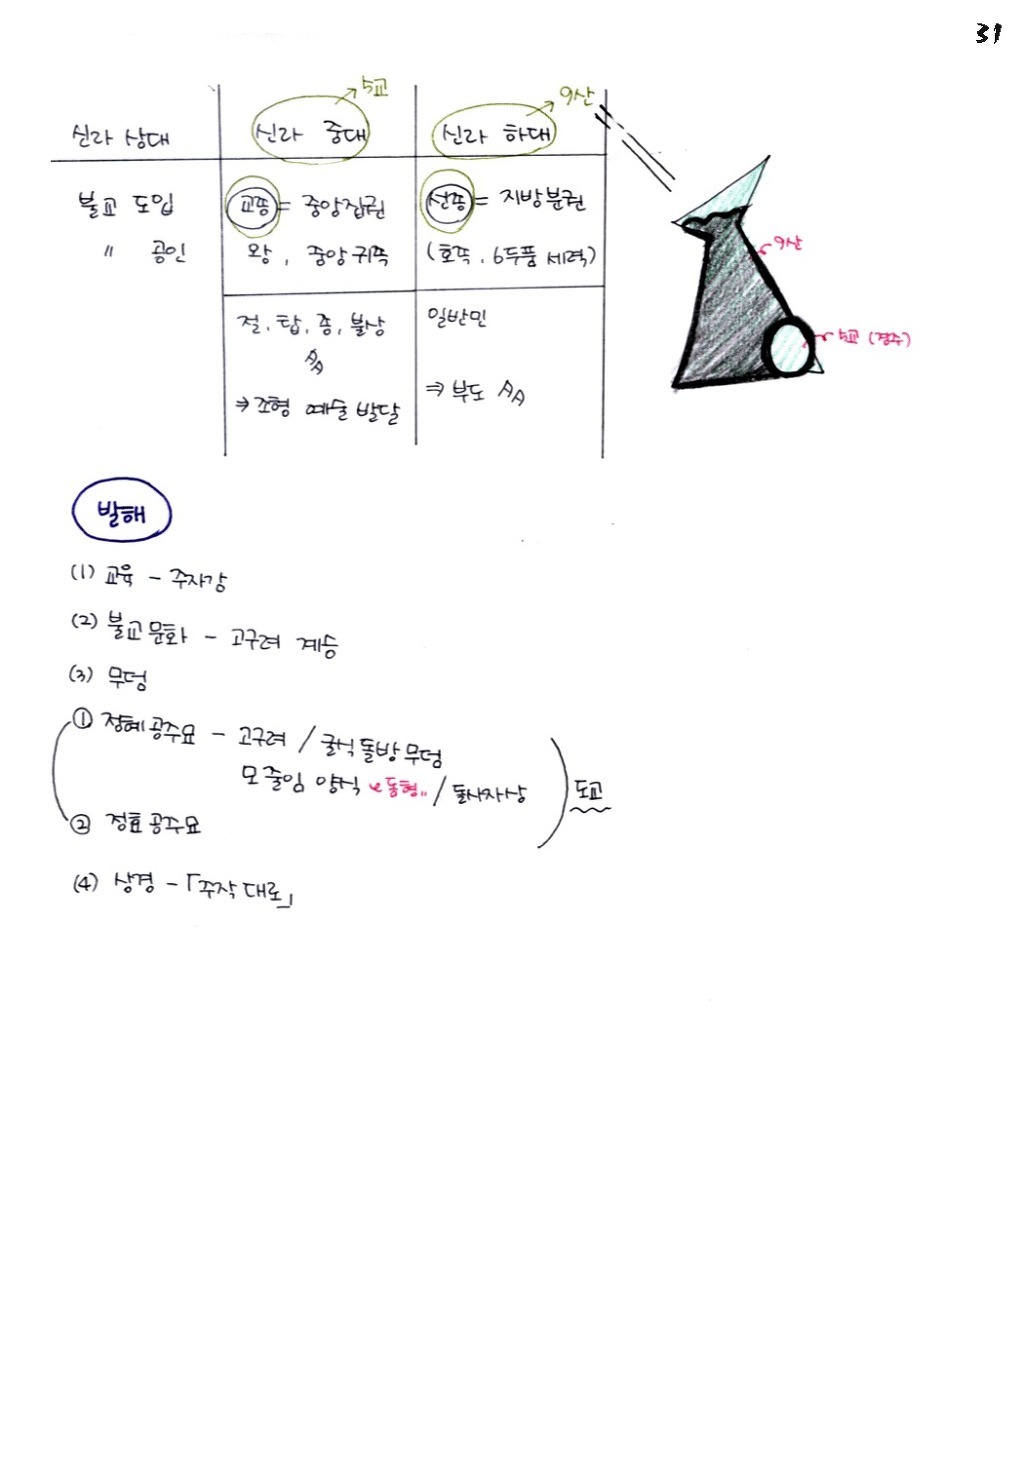 31
5교
9산
신라 상대
신라 중대
신라 하대
불교 도입
〃 공인
교종 = 중앙집권
왕, 중앙귀족
선종 = 지방분권
(호족, 6두품 세력)
절, 탑, 종, 불상
⇒ 조형 예술 발달
일반민
⇒ 부도
9산
5교 (경주)
발해
(1) 교육 - 주자감
(2) 불교문화 - 고구려 계승
(3) 무덤
① 정혜공주묘 - 고구려 / 굴식 돌방무덤
모줄임 양식 / 돌사자상
도교
② 정효공주묘
(4) 상경 - 「주작대로」